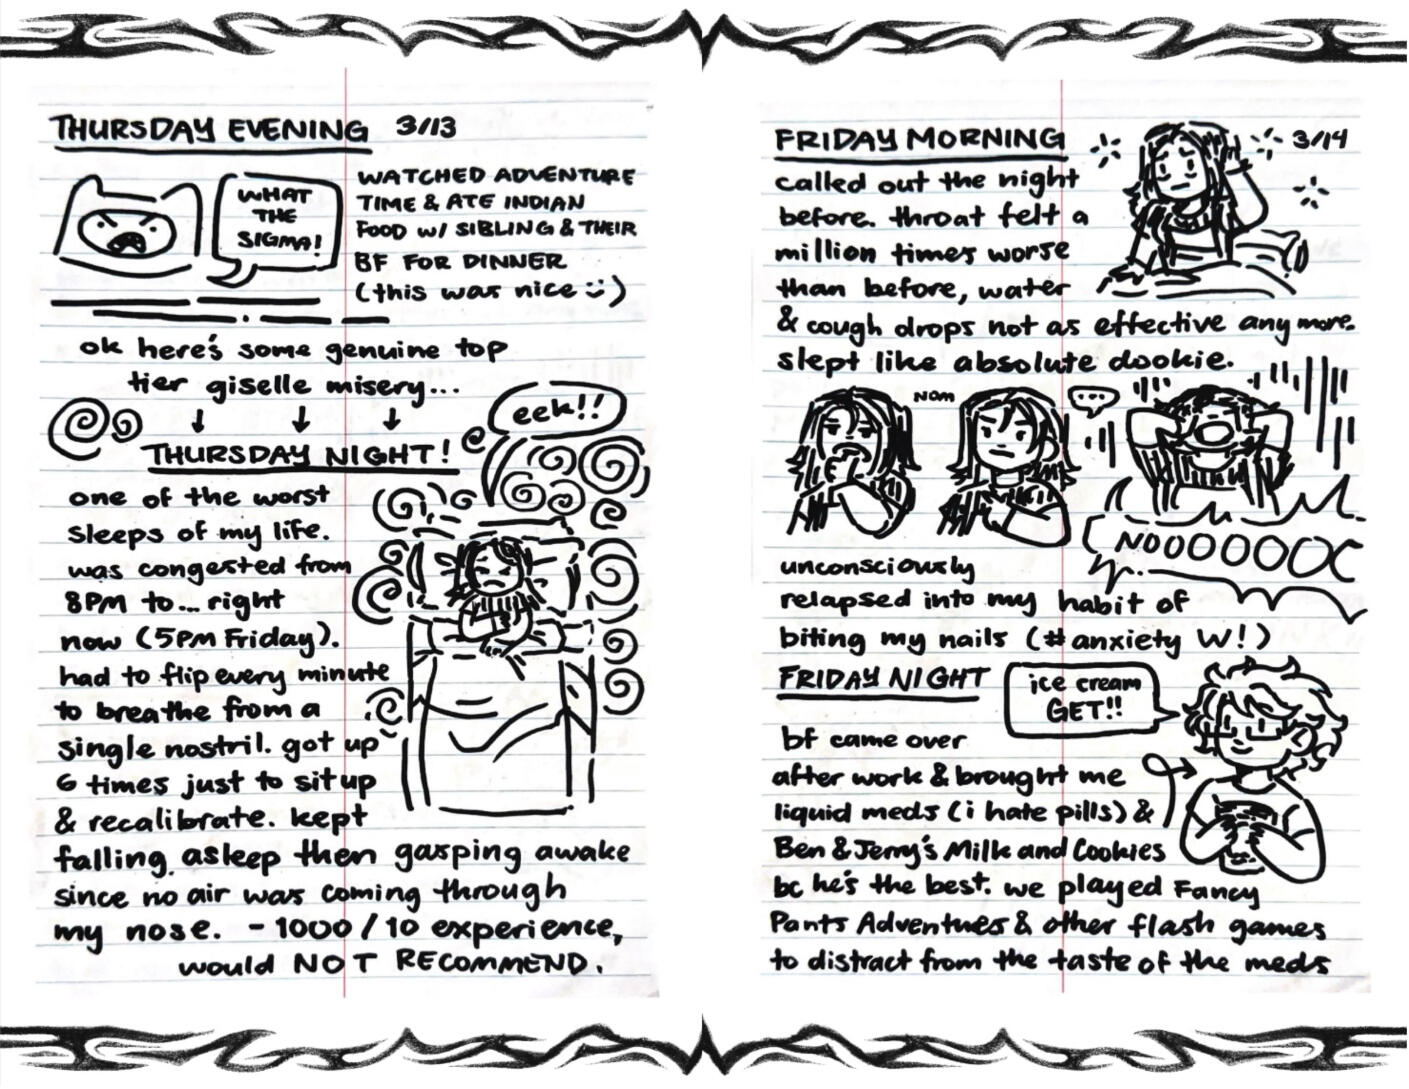 THURSDAY EVENING 3/13
WHAT
THE
SIGMA!
WATCHED ADVENTURE
TIME & ATE INDIAN
FOOD W/ SIBLING & THEIR
BF FOR DINNER
(this was nice :))
ok here's some genuine top
tier giselle misery...
eek!!
THURSDAY NIGHT!
one of the worst
sleeps of my life.
was congested from
8PM to... right
now (5PM Friday).
had to flip every minute
to breathe from a
single nostril. got up
6 times just to sit up
& recalibrate. kept
falling asleep then gasping awake
since no air was coming through
my nose. -1000/10 experience,
would NOT RECOMMEND.
FRIDAY MORNING 3/14
called out the night
before. throat felt a
million times worse
than before, water
& cough drops not as effective anymore.
slept like absolute dookie.
NOM
...
NOOOOOOC
unconsciously
relapsed into my habit of
biting my nails (#anxiety W!)
FRIDAY NIGHT
ice cream
GET!!
bf came over
after work & brought me
liquid meds (i hate pills) &
Ben & Jerry's Milk and Cookies
bc he's the best. we played Fancy
Pants Adventures & other flash games
to distract from the taste of the meds